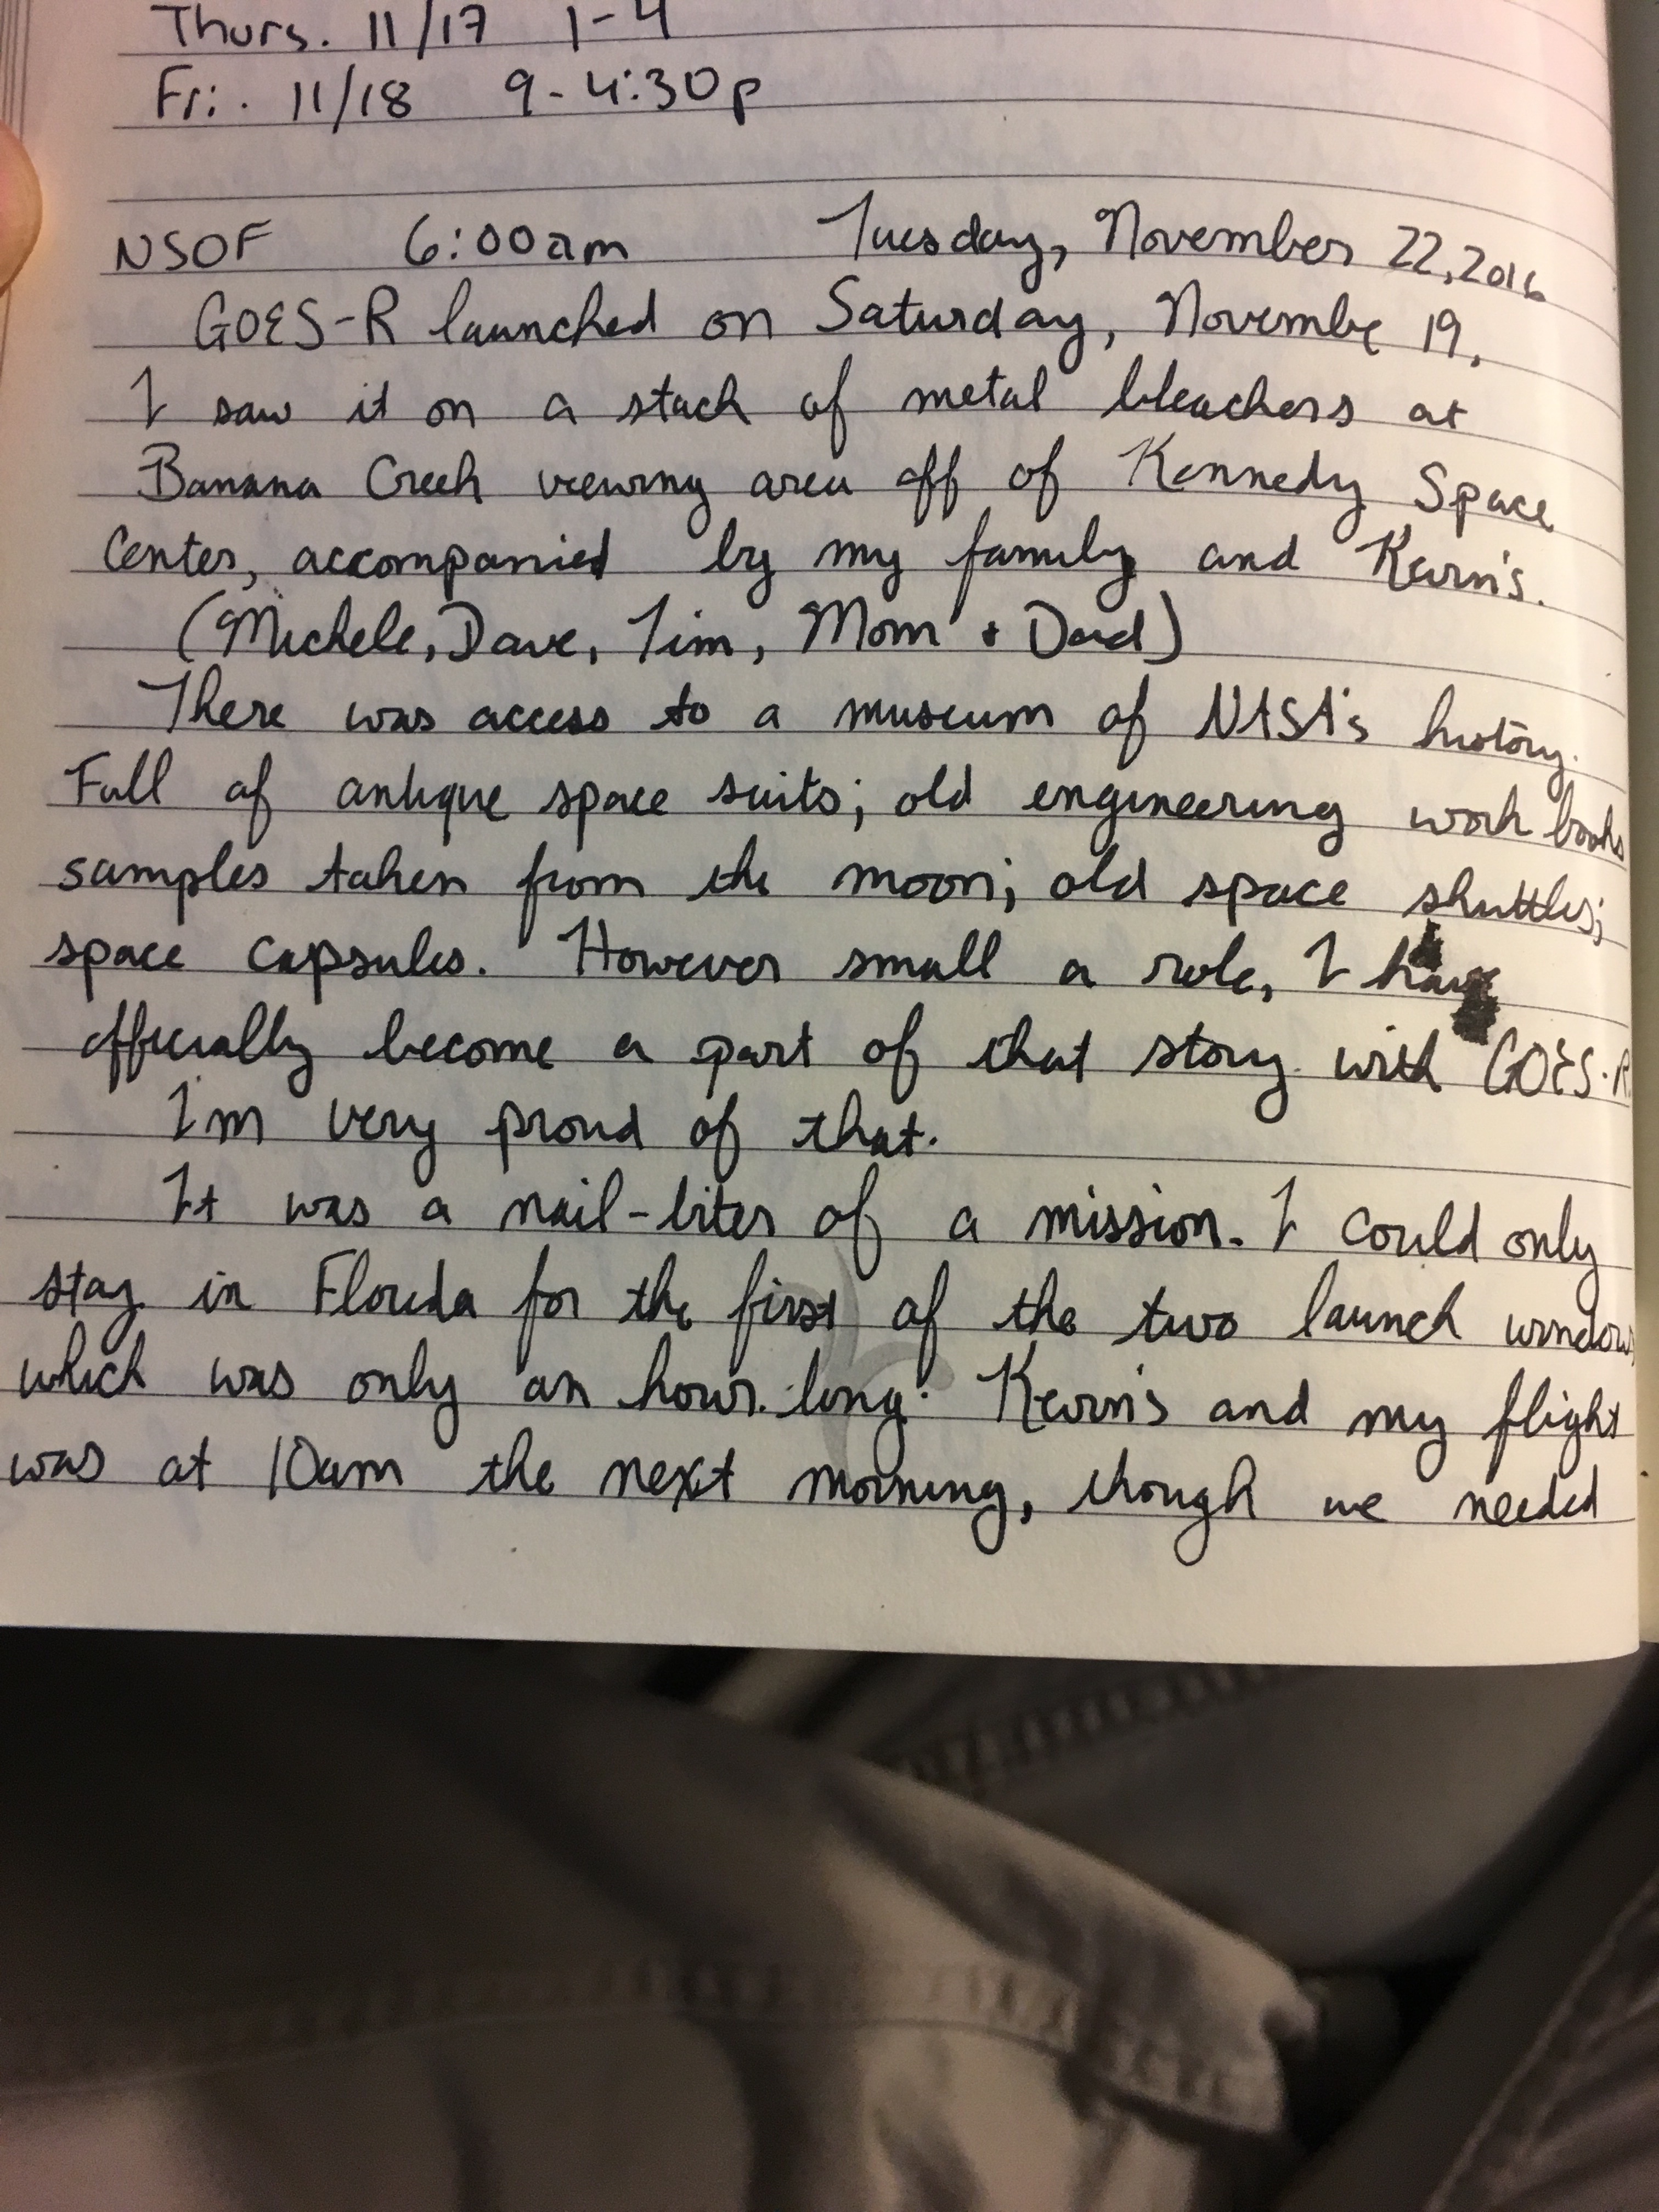 Thurs. 11/17 1-4
Fri. 11/18 9-4:30p
NSOF 6:00am Tuesday, November 22, 2016
GOES-R launched on Saturday, November 19.
I saw it on a stack of metal bleachers at
Banana Creek viewing area off of Kennedy Space
Center, accompanied by my family and Kevin's.
(Michele, Dave, Tim, Mom + Dad)
There was access to a museum of NASA's history.
Full of antique space suits; old engineering work books
samples taken from the moon; old space shuttles;
space capsules. However small a role, I have
officially become a part of that story with GOES-R
I'm very proud of that.
It was a nail-biter of a mission. I could only
stay in Florida for the first of the two launch windows
which was only an hour long. Kevin's and my flight
was at 10am the next morning, though we needed